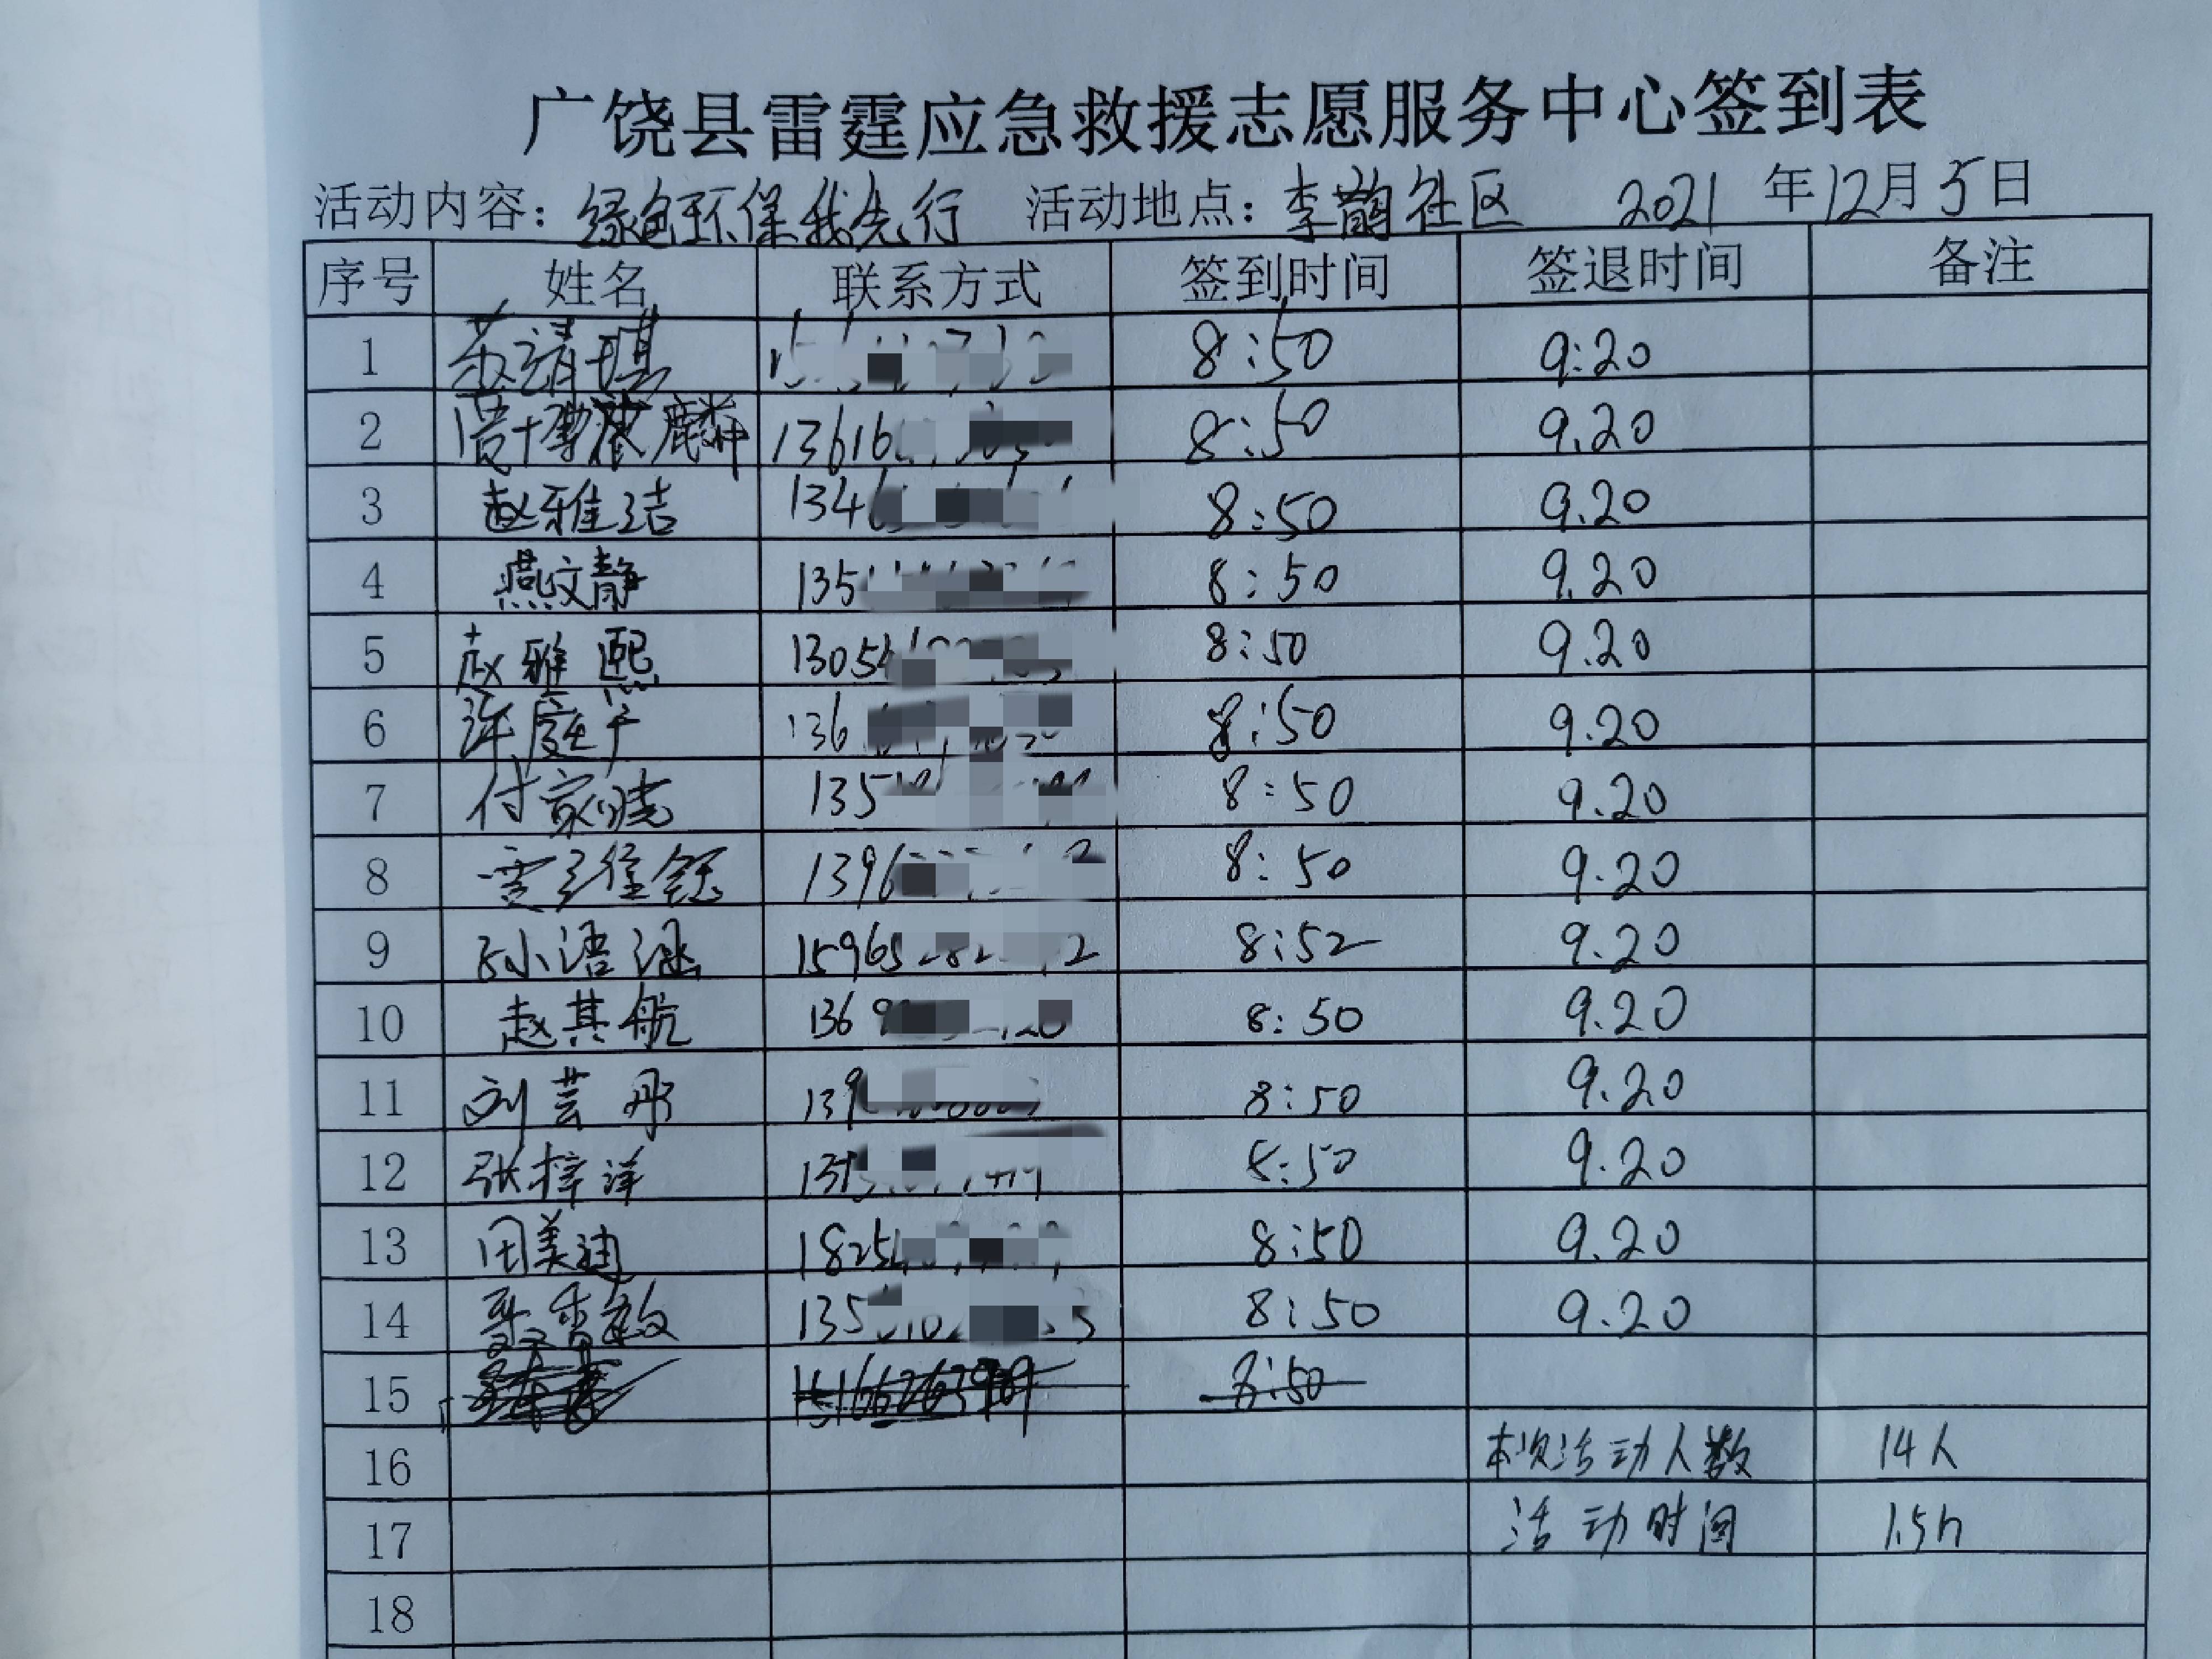 广饶县雷霆应急救援志愿服务中心签到表
活动内容：绿色环保我先行 活动地点：李鹊社区 2021年12月5日
序号 姓名 联系方式 签到时间 签退时间 备注
1 8:50 9:20
2 13616 8:50 9.20
3 赵雅洁 134 8:50 9.20
4 燕文静 135 8:50 9.20
5 赵雅熙 1305 8:50 9.20
6 许庭于 136 8:50 9.20
7 付家晓 135 8:50 9.20
8 1396 8:50 9.20
9 孙小语涵 15965 8:52 9.20
10 赵其航 136 8:50 9.20
11 刘芸彤 139 8:50 9.20
12 张梓洋 8:50 9.20
13 田美迪 1825 8:50 9.20
14 135 8:50 9.20
15 8:50
16 本次活动人数 14人
17 活动时间 1.5h
18